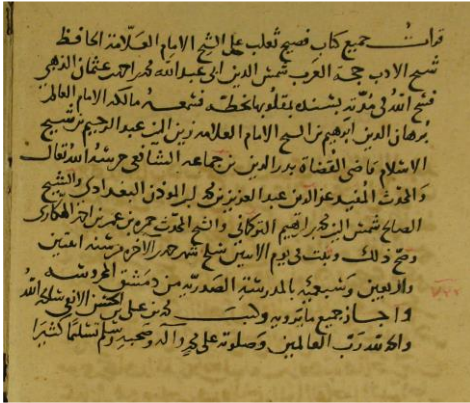 قرات جميع كتاب فصيح ثعلب على الشيخ الامام العلامة الحافظ
شيخ الادب حجة العرب شمس الدين ابي عبد الله محمد بن احمد بن عثمان الذهبي
فسح الله في مدته بسنده بخطه فسمعه مالكه الامام العالم
برهان الدين ابرهيم بن الشيخ الامام العلامة زين الدين عبد الرحيم بن شيخ
الاسلام قاضي القضاة بدر الدين بن جماعة الشافعي حرسه الله تعالى
والمحدث المفيد عز الدين عبد العزيز بن المؤذن البغدادي والشيخ
الصالح شمس الدين محمد بن ابراهيم والشيخ المحدث حمزة بن عمر بن احمد الهكاري
وصح ذلك وثبت في يوم الاثنين سلخ شهر الاخرة من سنة اثنتين
واربعين وسبعمئة بالمدرسة الصدرية من دمشق المحروسة
واجاز جميع ما يرويه وكتب محمد بن علي بن الحسن
والحمد لله رب العالمين وصلوته على محمد وآله وصحبه وسلم تسليما كثيرا